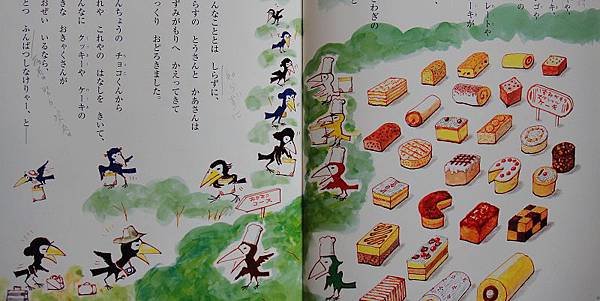 ゴや
レートや
ケーキが、
わぎの
んなこととは しらずに、
らすの とうさんと かあさんは
ずみがもりへ かえってきて
っくり おどろきました。
んちょうの チョコくんから
れや これやの はなしを きいて、
んなに クッキーや ケーキの
きな おきゃくさんが
おぜい いるなら、
とつ ふんぱつしなけりゃー、と──
コース